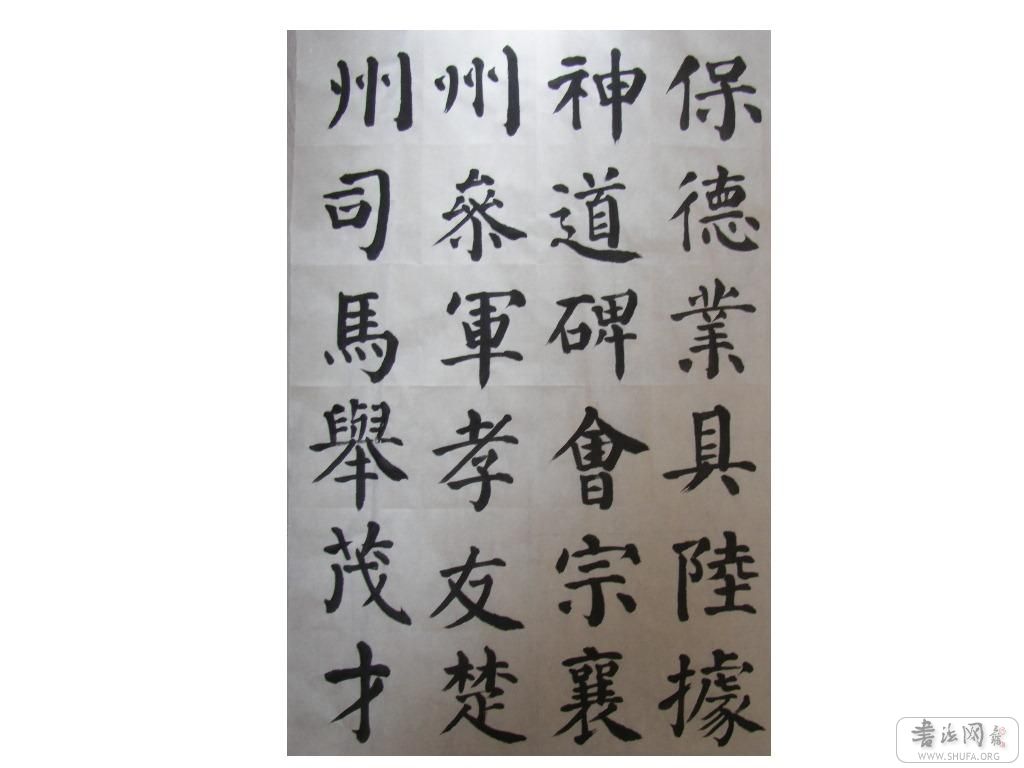 保德業具陸據
神道碑會宗襄
州參軍孝友楚
州司馬舉茂才
書法网
WWW.SHUFA.ORG